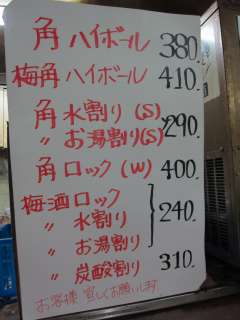 角 ハイボール 380.-
梅角 ハイボール 410.-
角 水割り (S)
〃 お湯割り(S) 290.-
角 ロック (W) 400.-
梅酒 ロック
〃 水割り 240.-
〃 お湯割り
〃 炭酸割り 310.-
お客様 宜しくお願いします